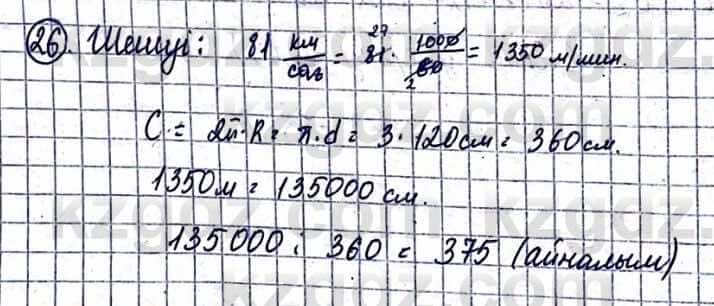 26. Шешуі: 81 км/сағ = 81 · 1000/60 = 1350 м/мин.
C = 2π·R = π·d = 3·120см = 360см.
1350м = 135000 см.
135000 : 360 = 375 (айналым)